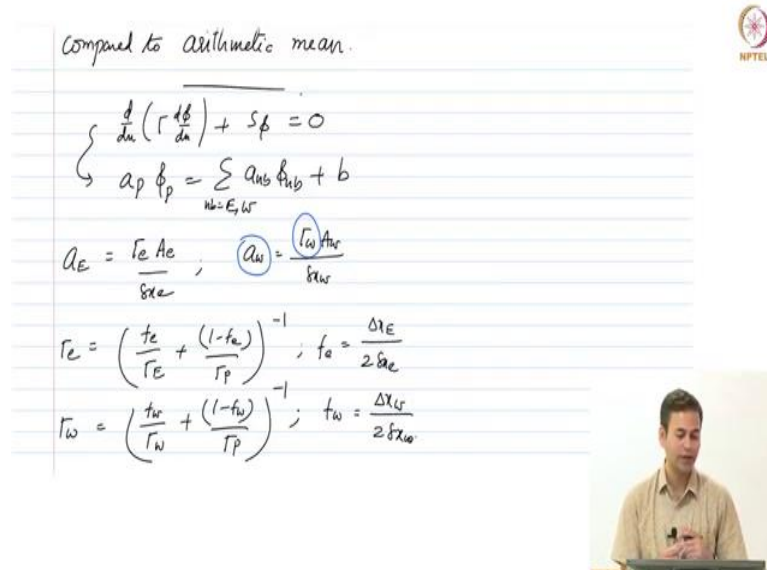 compared to arithmetic mean.
d/dx (Γ dϕ/dx) + Sϕ = 0
a_P ϕ_P = Σ_{nb=E,W} a_nb ϕ_nb + b
a_E = Γe Ae / δxe ; a_w = Γw Aw / δxw
Γe = (fe/Γ_E + (1-fe)/Γ_P)^-1 ; fe = Δx_E / 2δxe
Γw = (fw/Γ_W + (1-fw)/Γ_P)^-1 ; fw = Δx_W / 2δxw
NPTEL